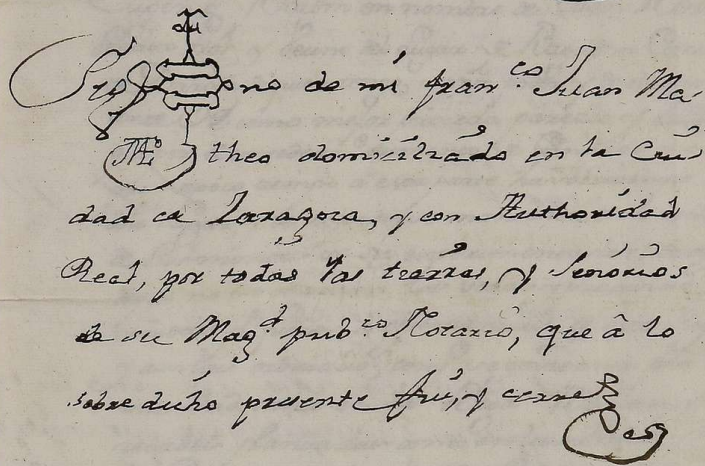 Sig no de mi fran.co Juan Ma-
theo domiciliado en la Ciu-
dad de Zaragoza, y con Authoridad
Real, por todas las tierras, y Señorios
de su Mag.d pub.co Notario, que â lo
sobre dicho presente fui, y cerre